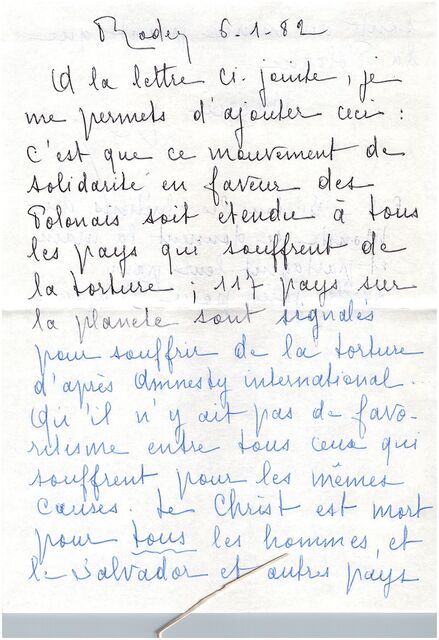 Rodez 6.1.82
A la lettre ci-jointe, je
me permets d'ajouter ceci :
C'est que ce mouvement de
solidarité en faveur des
Polonais soit étendu à tous
les pays qui souffrent de
la torture ; 117 pays sur
la planète sont signalés
pour souffrir de la torture
d'après Amnesty international.
Qu'il n'y ait pas de favo-
ritisme entre tous ceux qui
souffrent pour les mêmes
causes. Le Christ est mort
pour tous les hommes, et
le Salvador et autres pays